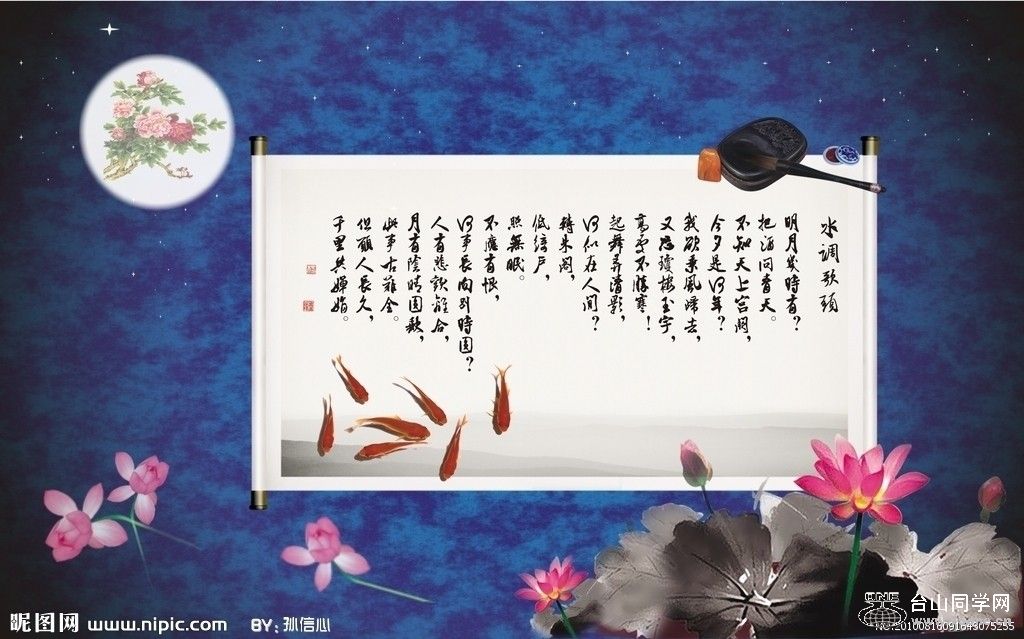 水调歌頭
明月幾時有？
把酒问青天。
不知天上宫阙，
今夕是何年？
我欲乘風歸去，
又恐瓊樓玉宇，
高處不勝寒！
起舞弄清影，
何似在人间？
轉朱阁，
低绮户，
照無眠。
不應有恨，
何事長向别時圆？
人有悲歡離合，
月有陰晴圆缺，
此事古難全。
但願人長久，
千里共嬋娟。
昵图网 www.nipic.com BY：孙信心
台山同学网